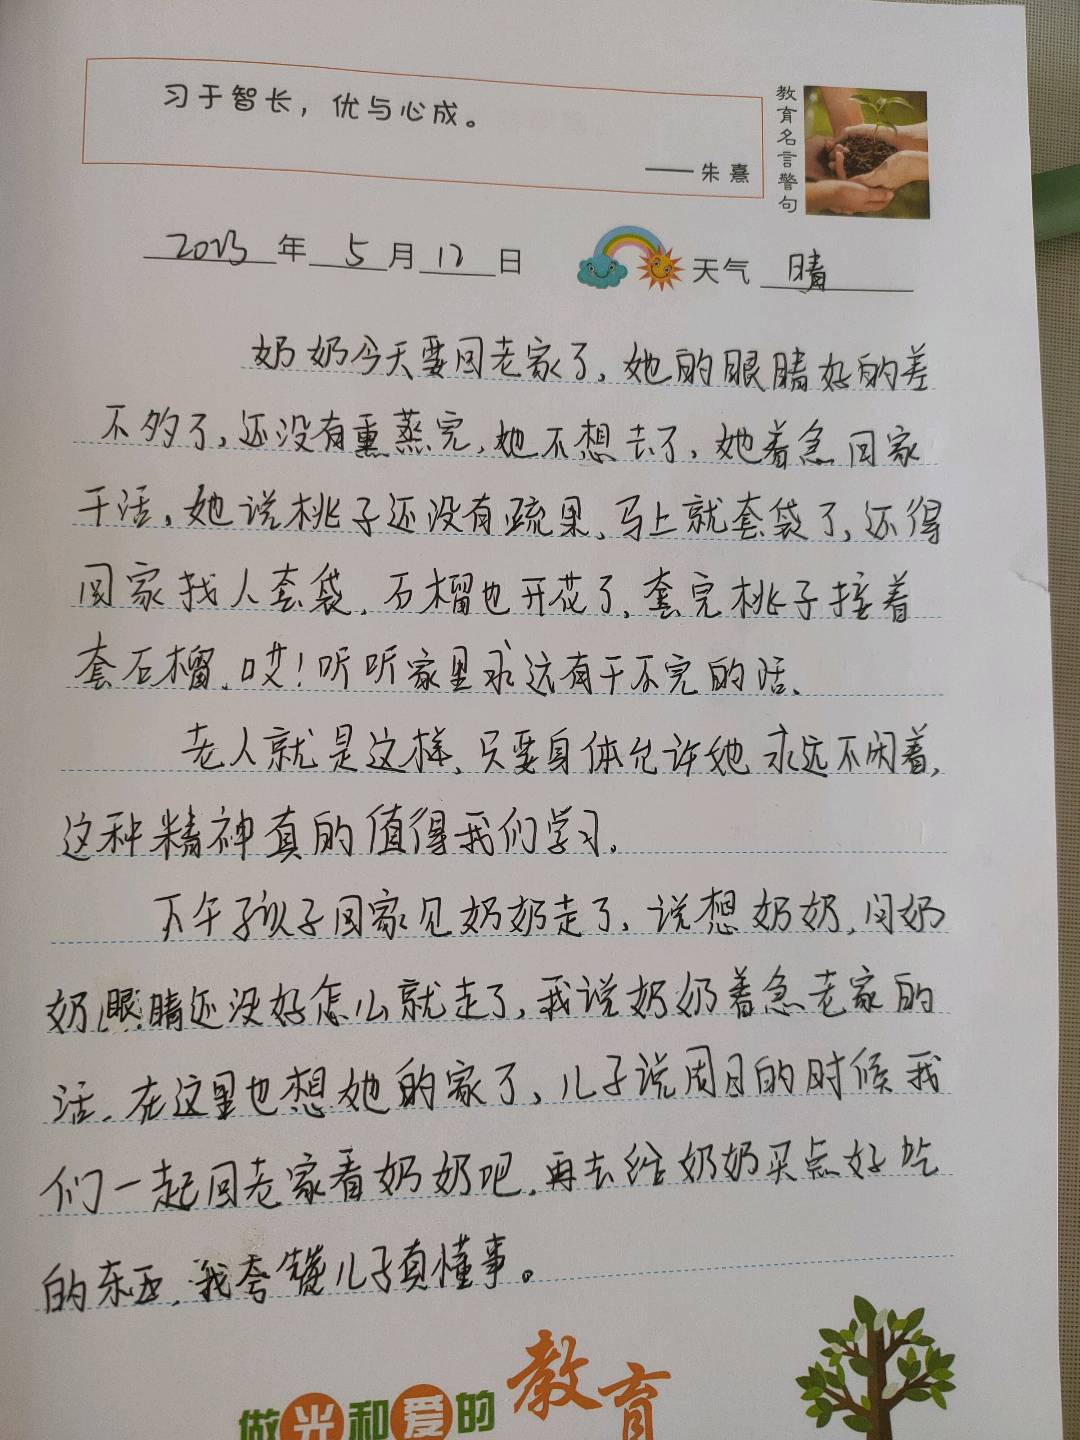 习于智长，优与心成。
——朱熹
教育名言警句
2023年5月12日 天气 晴
奶奶今天要回老家了，她的眼睛好的差
不多了，还没有熏蒸完，她不想去了，她着急回家
干活，她说桃子还没有疏果，马上就套袋了，还得
回家找人套袋，石榴也开花了，套完桃子接着
套石榴，哎！听听家里永远有干不完的活、
老人就是这样，只要身体允许她永远不闲着，
这种精神真的值得我们学习，
下午孩子回家见奶奶走了，说想奶奶，问奶
奶眼睛还没好怎么就走了，我说奶奶着急老家的
活，在这里也想她的家了，儿子说周日的时候我
们一起回老家看奶奶吧，再去给奶奶买点好吃
的东西，我夸儿子真懂事。
做光和爱的教育